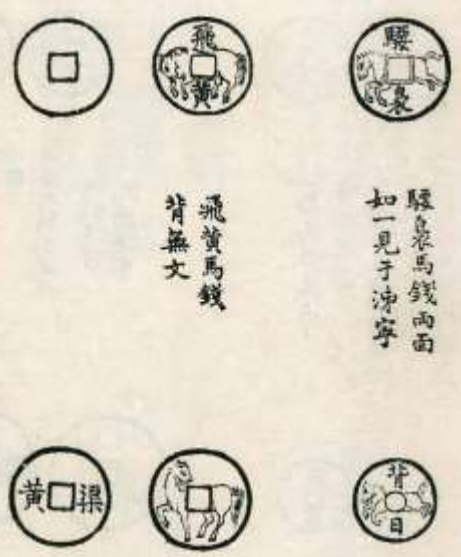 騕褭
騕褭馬錢兩面
如一見于泲寧
背目
飛黃
飛黃馬錢
背無文
渠黃